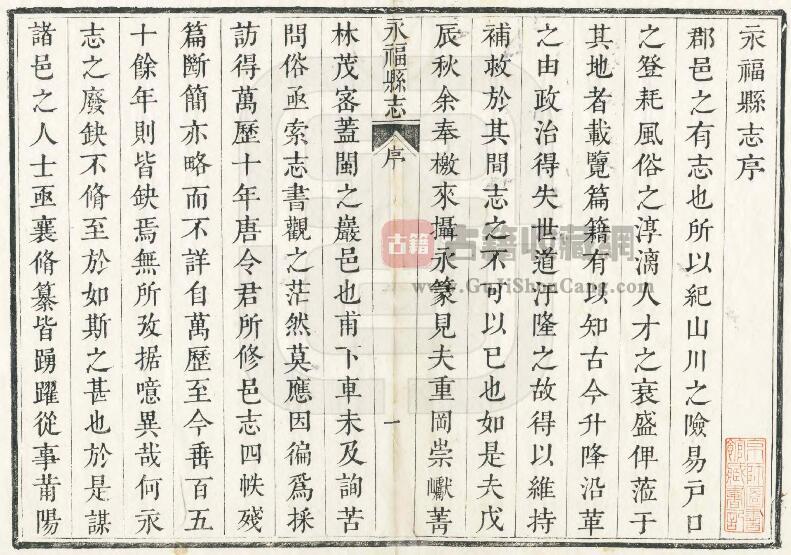 永福縣志序
郡邑之有志也所以紀山川之險易戸口
之登耗風俗之淳漓人才之衰盛俾蒞于
其地者載覽篇籍有以知古今升降沿革
之由政治得失世道汙隆之故得以維持
補救於其間志之不可以已也如是夫戊
辰秋余奉檄來攝永篆見夫重岡崇巘菁
永福縣志 序 一
林茂宻蓋閩之巖邑也甫下車未及詢苦
問俗亟索志書觀之茫然莫應因徧爲採
訪得萬歷十年唐令君所修邑志四帙殘
篇斷簡亦略而不詳自萬歷至今垂百五
十餘年則皆缺焉無所攷据噫異哉何永
志之廢缺不脩至於如斯之甚也於是謀
諸邑之人士亟襄脩纂皆踴躍從事莆陽
古籍
古籍收藏網
www.GuJiShouCang.com